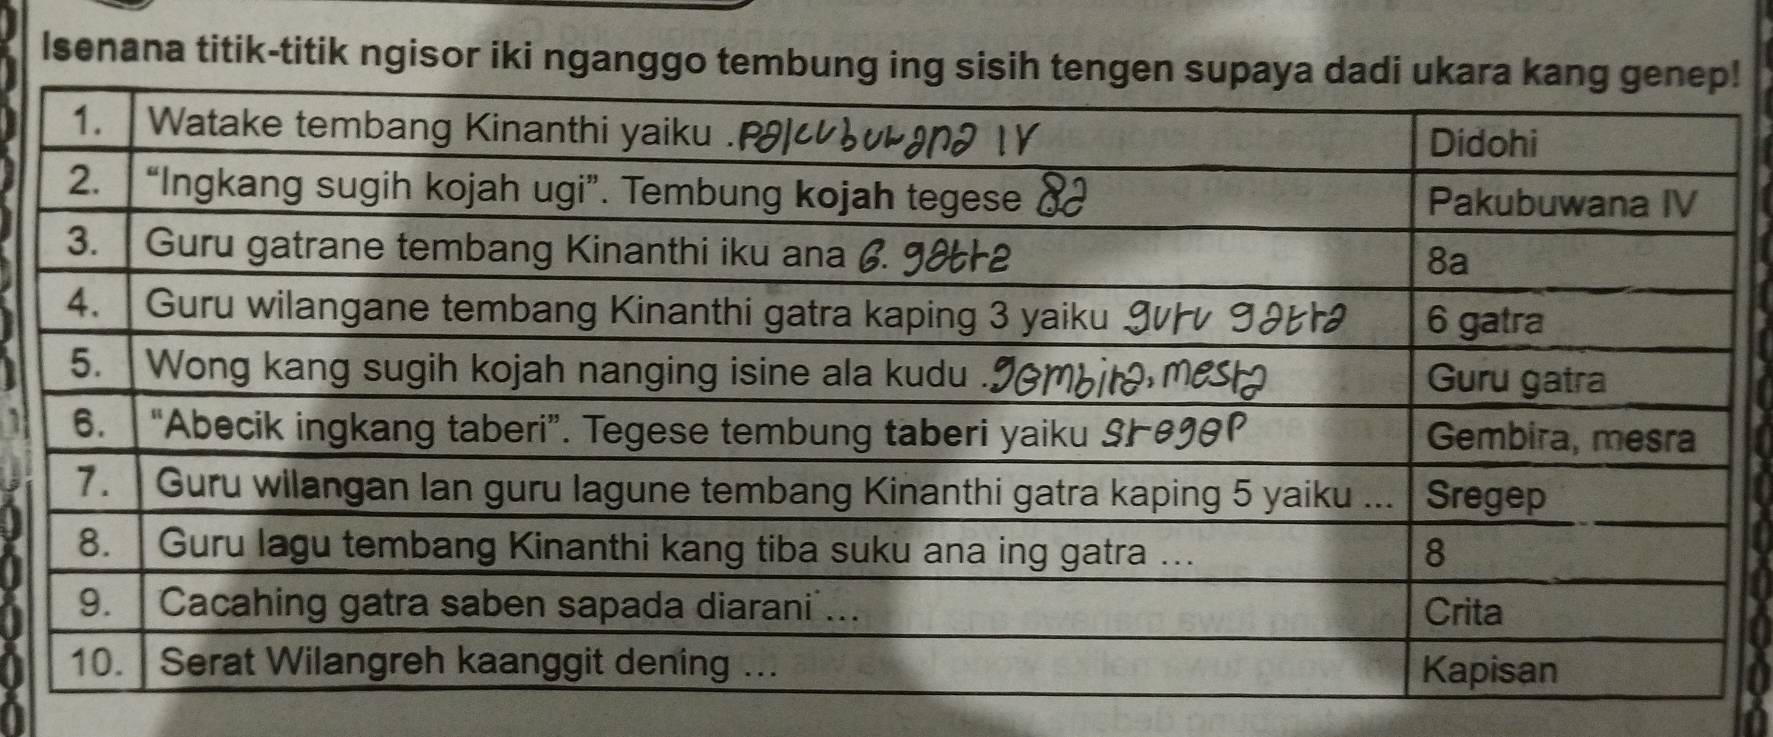 Isenana titik-titik ngisor iki nganggo tembung ing sisih tengen supaya dadi ukara kang genep!
1. Watake tembang Kinanthi yaiku .Pakubuwana IV Didohi
2. "Ingkang sugih kojah ugi". Tembung kojah tegese 8a Pakubuwana IV
3. Guru gatrane tembang Kinanthi iku ana 6. gatra 8a
4. Guru wilangane tembang Kinanthi gatra kaping 3 yaiku guru gatra 6 gatra
5. Wong kang sugih kojah nanging isine ala kudu .gembira, mesra Guru gatra
6. "Abecik ingkang taberi". Tegese tembung taberi yaiku sregep Gembira, mesra
7. Guru wilangan lan guru lagune tembang Kinanthi gatra kaping 5 yaiku ... Sregep
8. Guru lagu tembang Kinanthi kang tiba suku ana ing gatra ... 8
9. Cacahing gatra saben sapada diarani ... Crita
10. Serat Wilangreh kaanggit dening ... Kapisan